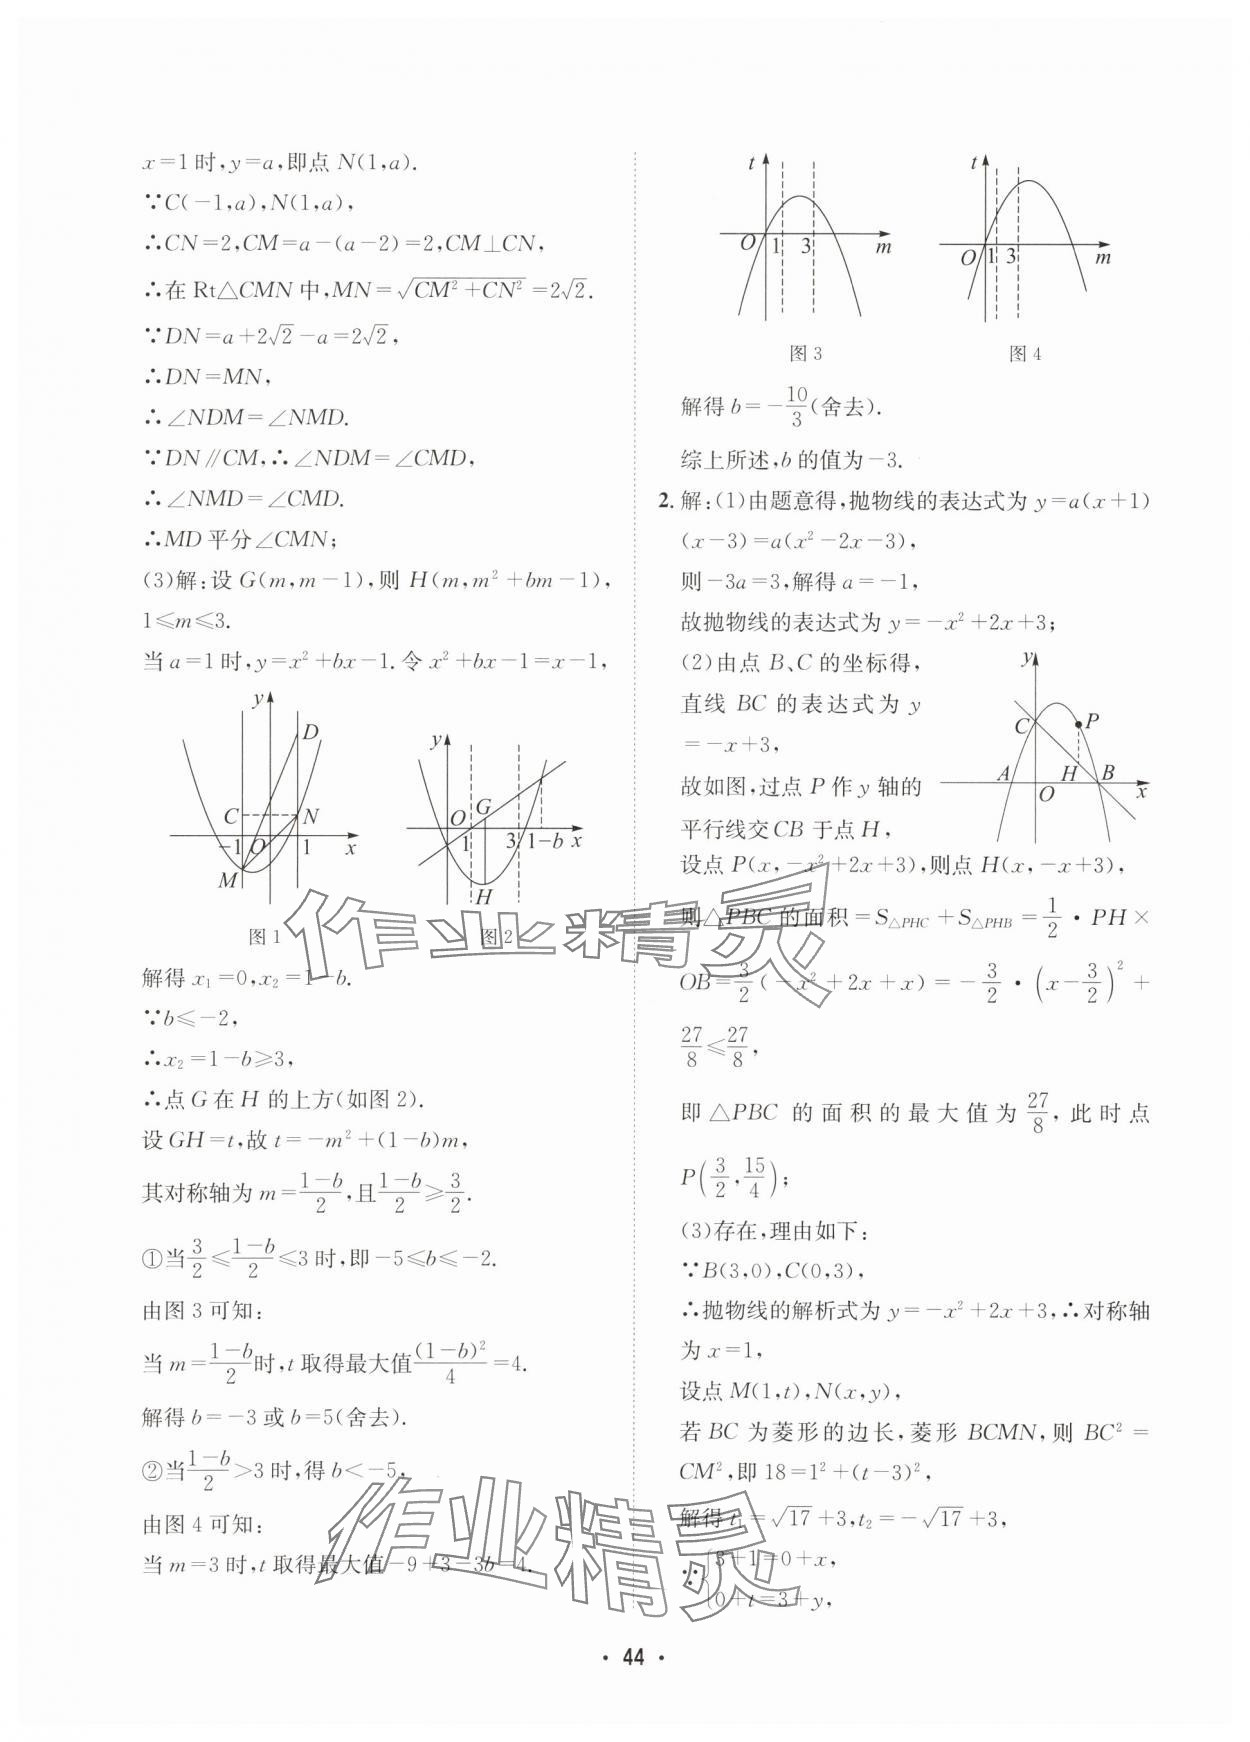 x=1时,y=a,即点 N(1,a).
∵C(-1,a),N(1,a),
∴CN=2,CM=a-(a-2)=2,CM⊥CN,
∴在 Rt△CMN 中,MN=√(CM²+CN²)=2√2.
∵DN=a+2√2-a=2√2,
∴DN=MN,
∴∠NDM=∠NMD.
∵DN∥CM,∴∠NDM=∠CMD,
∴∠NMD=∠CMD.
∴MD平分∠CMN;
(3)解:设 G(m,m-1),则 H(m,m²+bm-1),
1≤m≤3.
当 a=1时,y=x²+bx-1.令 x²+bx-1=x-1,
y
D
C
N
-1
O
1
x
M
图 1
y
O
G
1
3
1-b
x
H
图 2
解得 x₁=0,x₂=1-b.
∵b≤-2,
∴x₂=1-b≥3,
∴点 G 在 H 的上方(如图 2).
设 GH=t,故 t=-m²+(1-b)m,
其对称轴为 m=(1-b)/2,且(1-b)/2≥3/2.
①当3/2≤(1-b)/2≤3时,即-5≤b≤-2.
由图 3 可知:
当 m=(1-b)/2时,t 取得最大值(1-b)²/4=4.
解得 b=-3 或 b=5(舍去).
②当(1-b)/2>3时,得 b<-5,
由图 4 可知:
当 m=3时,t 取得最大值-9+3-3b=4.
t
O
1
3
m
图 3
t
O
1
3
m
图 4
解得 b=-10/3(舍去).
综上所述,b 的值为-3.
2. 解:(1)由题意得,抛物线的表达式为 y=a(x+1)
(x-3)=a(x²-2x-3),
则-3a=3,解得 a=-1,
故抛物线的表达式为 y=-x²+2x+3;
(2)由点 B、C 的坐标得,
直线 BC 的表达式为 y
=-x+3,
故如图,过点 P 作 y 轴的
平行线交CB 于点 H,
y
C
P
A
H
B
O
x
设点 P(x,-x²+2x+3),则点 H(x,-x+3),
则△PBC 的面积=S△PHC+S△PHB=1/2·PH×
OB=3/2(-x²+2x+x)=-3/2·(x-3/2)²+
27/8≤27/8,
即△PBC 的面积的最大值为27/8,此时点
P(3/2,15/4);
(3)存在,理由如下:
∵B(3,0),C(0,3),
∴抛物线的解析式为 y=-x²+2x+3,∴对称轴
为 x=1,
设点 M(1,t),N(x,y),
若 BC 为菱形的边长,菱形 BCMN,则 BC²=
CM²,即 18=1²+(t-3)²,
解得 t₁=√17+3,t₂=-√17+3,
∵{3+1=0+x,
0+t=3+y,
作业精灵
作业精灵
· 44 ·